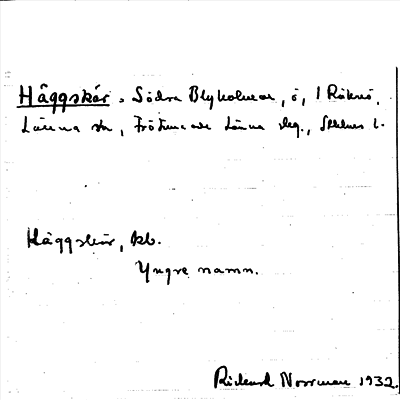 Häggskär = Södra Blykolmen, ö, i Råknö,
Länna sn, Frötuna och Länna skg., Sthlms l.
Häggskär, kb.
Yngre namn.
Rickard Norrman 1932.